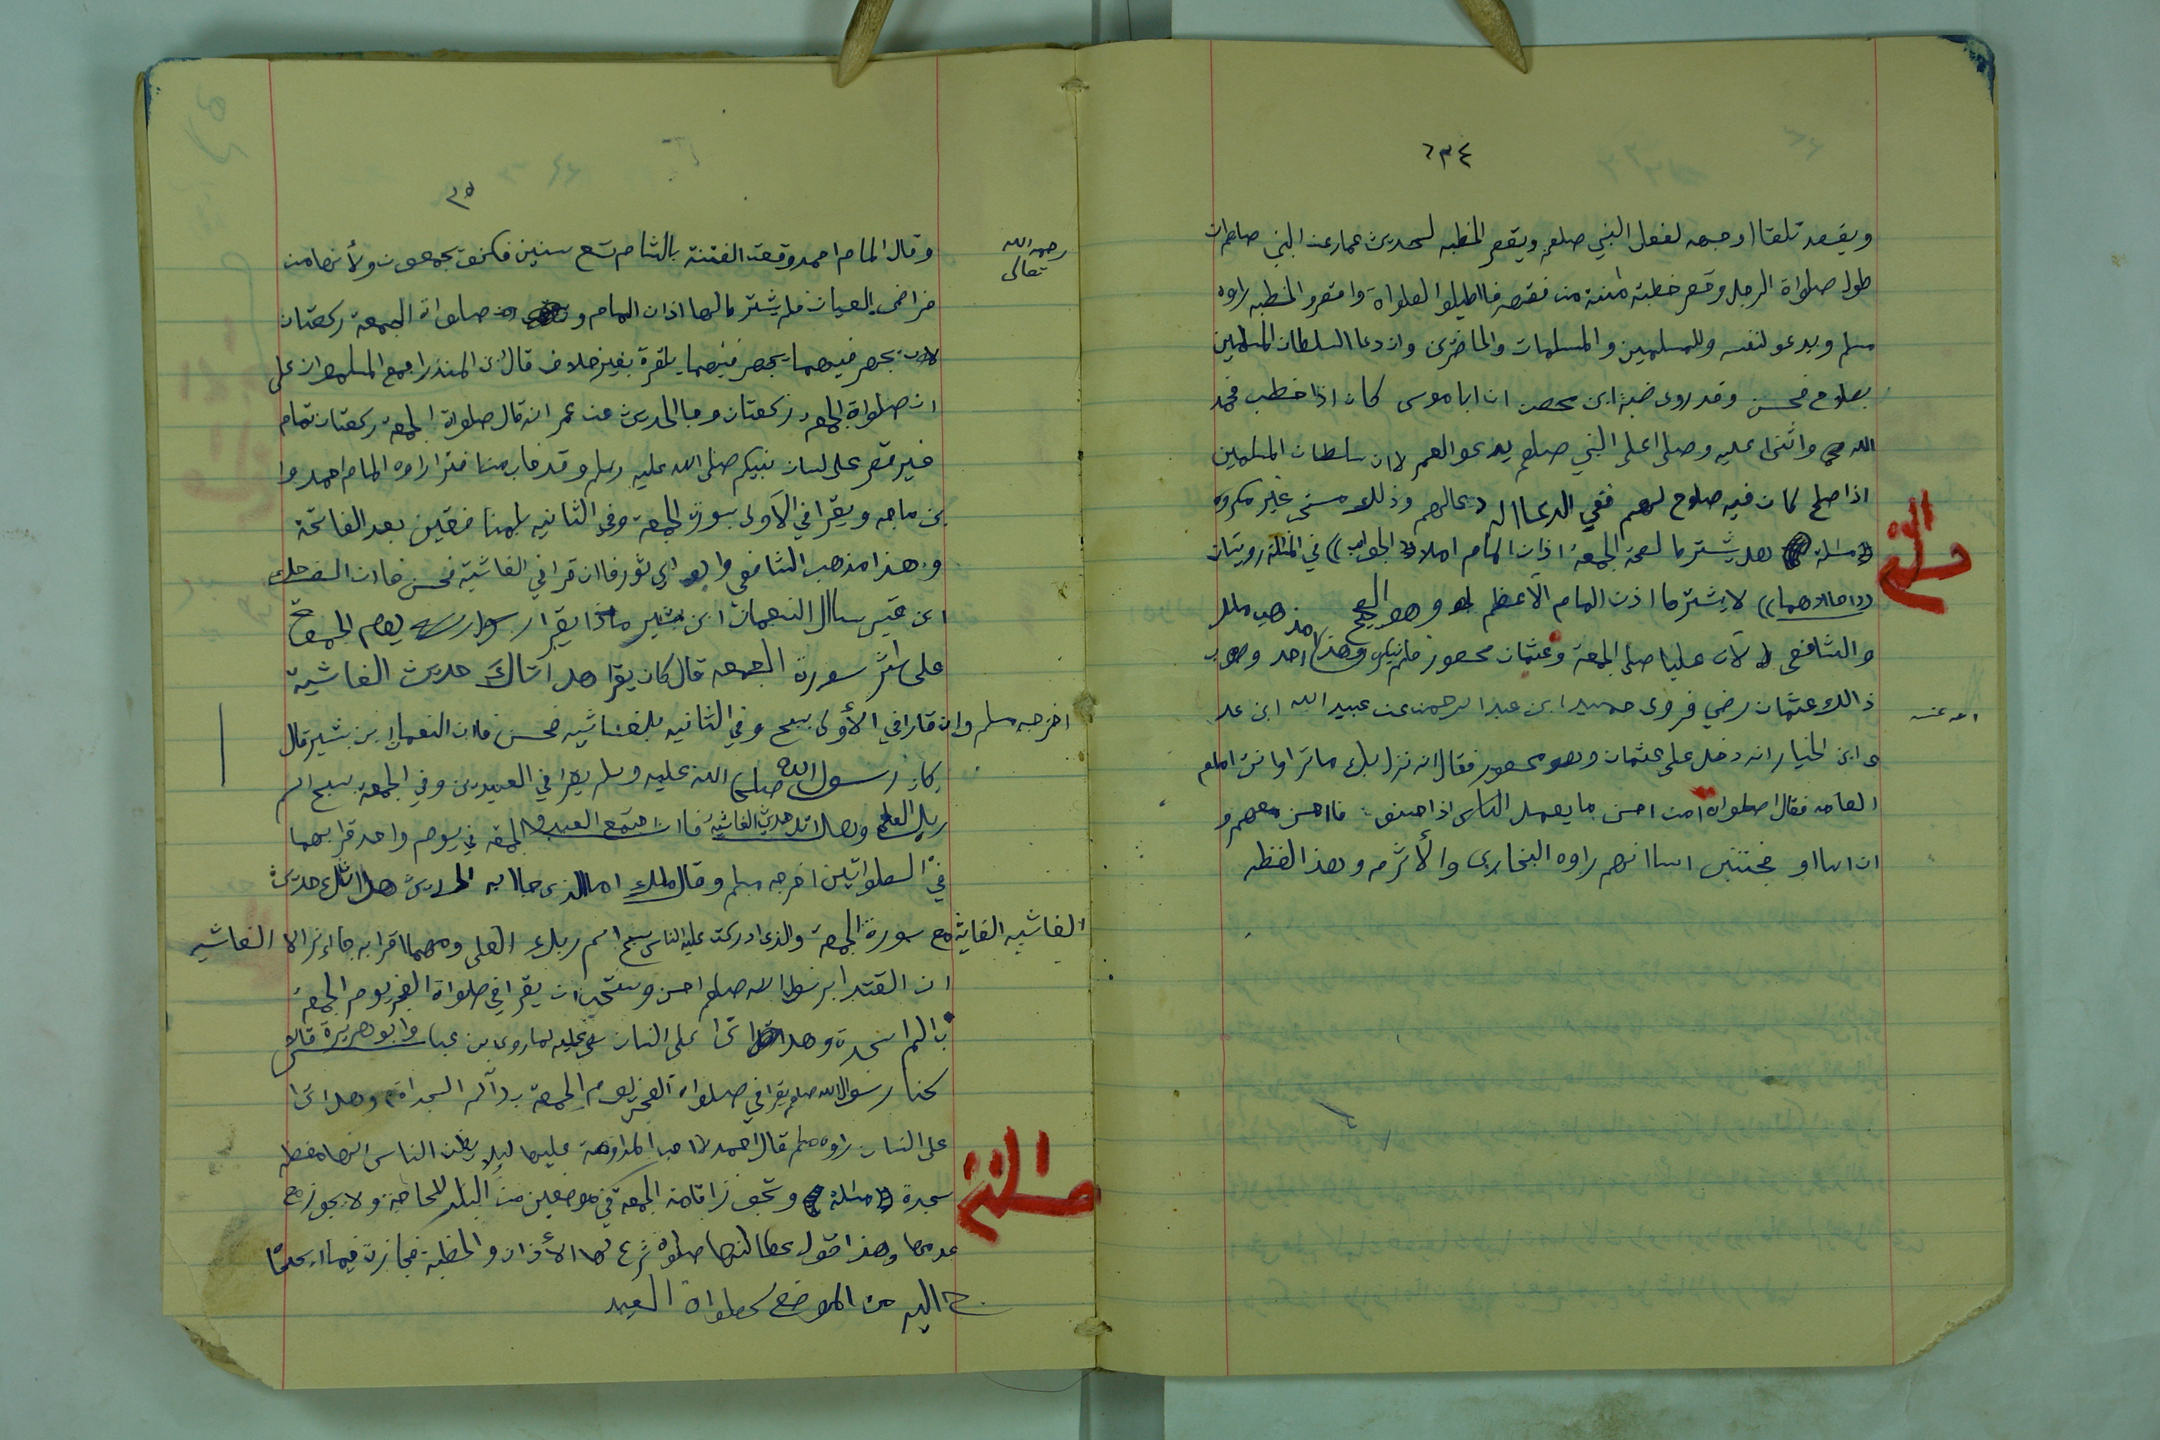 ٦٣٤
ويقصد تلقاا وجهه لفعل النبي صلعم ويقصر الخطبه لحديث عمار عن النبي صلعم ان
طول صلواة الرجل وقصر خطبته مئنة من فقهه فااطيلوا الصلواة واقصرو الخطبه راوه
مسلم ويدعو لنفسه وللمسلمين و المسلمات والحاضرين وان دعا السلطان المسلمين
بصلاح فحسن وقد روى ضبة ابن محصن ان ابا موسى كان اذا خطب فحمد
الله واثنى عليه وصلى اعلى النبي صلعم يدعو العمر لاان سلطان المسلمين
اذا صلح كان فيه صلاح لهم ففي الدعاا له دعالهم وذلك مستحب غير مكروه
مسئلة هل يشترط لصحة الجمعة اذان المام املا (الجواب) في المسئلة رويتان
((احلادهما)) لا يشترط اذن المام الأعظم وهو الصحيح مذهب ملك
و الشافعي لأن عليا صلى الجمعة وعثمان محصور فلم ينكر وهذا احد وصوب
ذالك عثمان رضي فروى حميد ابن عبد الرحمن عن عبيد الله ابن عد
الله عنه
ى ابن الخيار انه دخل على عثمان وهو محصور فقال انه نزل بك ماترا وانت املم
العامه فقال اصلواة امن احسن ما يعمل الناس اذا حسنو فااحسن معهم و
ان اسااو فجتنب اساا تهم راوه البخاري والأثرمه وهذ الفظه
المسئلة
٦٣٥
وقال المام احمد وقعة الفتنة بالشام تسع سنين فكنو يجمعون ولأنها من
رحمه الله
تعالى
فراض العيان فلم يشترط لها اذان المام و صلواة الجمعة ركعتان
يجهر فيهما بلقرة بغير خلاف قال ابن المنذر اجمع المسلموان على
ان صلواة الجمعة ركعتان وجا الحديث عن عمر انه قال صلواة الجمعة ركعتان تمام
غير قصر على لسان نبيكم صلى الله عليه وسلم وقد خاب من افترا راوه المام احمد وا
بن ماجه ويقرا في الأولى بسورة الجمعة وفي الثانيه بلمنا فقين بعد الفاتحة
وهذا مذهب الشافعي وابو ثور فاان قرا في الثانية الغاشية فحسن فاان الضحاك
ابن قيس سال النعمان ابن بشير ماذا يقرا رسول الله يوم الجمعة
على اثر سورة الجمعه قال كان يقرا هل اتاك حديث الغاشية
اخرجه مسلم وان قارا في الأولى بسبح وفي الثانيه بلغاشيه فحسن فاان النعمان ابن بشير قال
كان رسول الله صلى الله عليه وسلم يقرا في العيدين وفي الجمعة بسبح اسم
ربك العلى وهل اتك حديث الغاشية فاان اجتمع العيد والجمعة في يوم واحد قرا بهما
في الصلواتين اخرجه مسلم وقال ملك اما الذي جاا به الحديث هل اتك حديث
الغاشيه مع سورة الجمعة والذي ادركت عليه الناس سبح اسم ربك العلى ومهما قرا به جاائز الا
ان القتدا برسول الله صلعم احسن ويستحب ان يقرا في صلواة الفجر يوم الجمعة
باالم السجدة وهل اتى على النسان لما روى بن عباس وابو هريرة قالا
كنا رسول الله صلعم يقرا في صلواة الفجر يوم الجمعة بـ((الم السجداة)) وهل اتا
على النسان راوه مسلم قال احمد لا احب المداومة عليها ليلا يظن الناس انها مفضله
بسجدة مسئلة وتجوز اقامة الجمعة في موضعين من البلد للحاجه ولا يجوز مع
عدمها وهذا قول عطا لنها صلواة شرع لها الأذان والخطبه فجازت فيما يحتا
ج اليه من المواضع كصلواة العيد
المسئلة